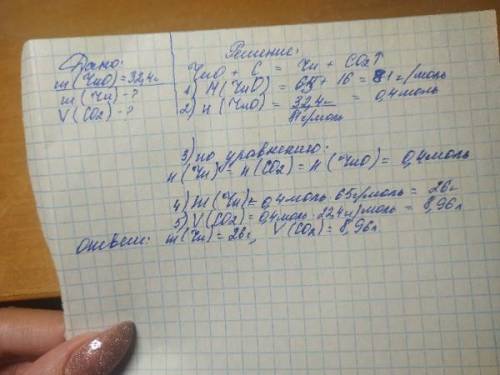 Дано:
m(ZnO)=32,4г
m(Zn)-?
V(CO2)-?
Решение:
ZnO + C = Zn + CO2↑
1) M(ZnO) = 65 + 16 = 81г/моль
2) n(ZnO) = 32,4г / 81г/моль = 0,4моль
3) по уравнению:
n(Zn) = n(CO2) = n(ZnO) = 0,4моль
4) m(Zn) = 0,4моль · 65г/моль = 26г
5) V(CO2) = 0,4моль · 22,4л/моль = 8,96л
ответ: m(Zn) = 26г, V(CO2) = 8,96л